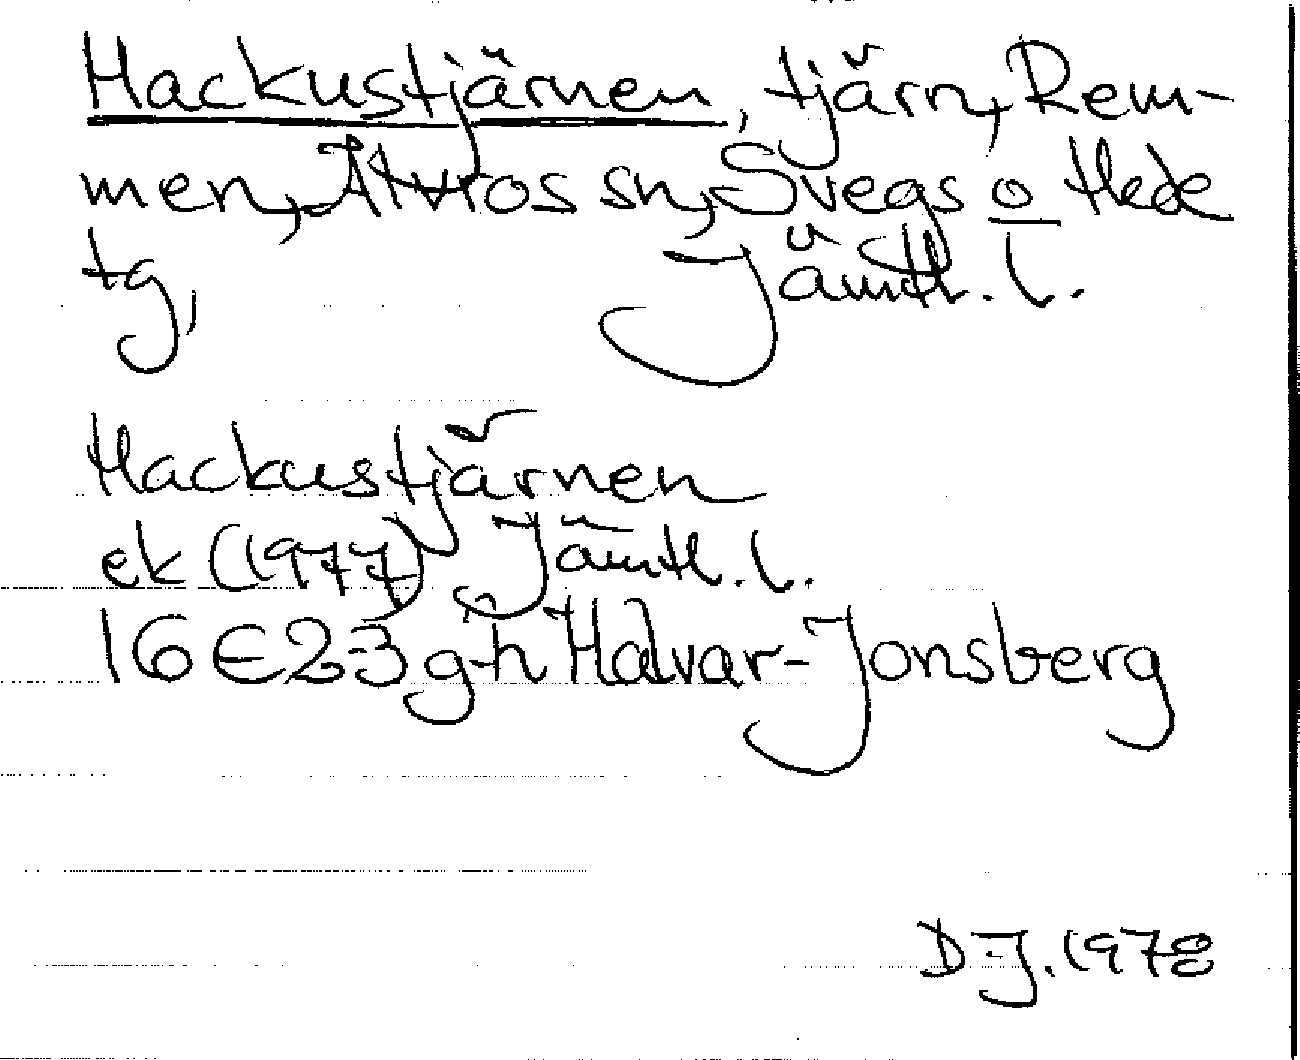 Hackustjärnen, tjärn, Rem-
men, Älvros sn, Svegs o Hede
tg, Jämtl. l.
Hackustjärnen
ek (1977) Jämtl. l.
16 E 2-3 g-h Halvar-Jonsberg
D-J. 1978